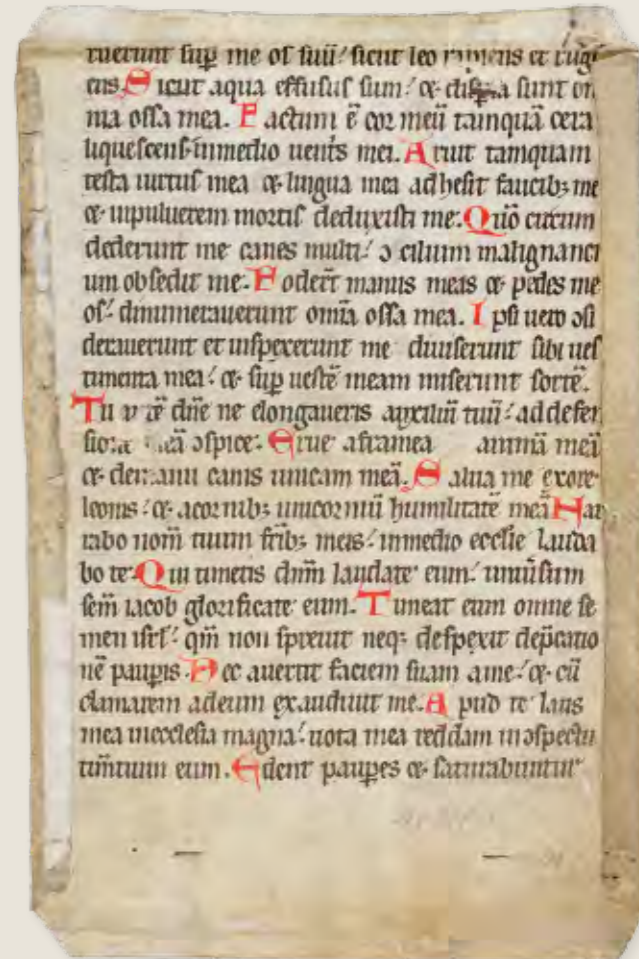 ruerunt sup me os suū: sicut leo rapiens et rugi
ens. Sicut aqua effusus sum: & dispsa sunt om
nia ossa mea. Factum ē cor meū tamquā cera
liquescens inmedio uentˢ mei. Aruit tamquam
testa uirtus mea & lingua mea adhesit faucib; me
& inpuluerem mortis deduxisti me. Qūo circum
dederunt me canes multi: ɔcilium malignanci
um obsedit me. Foder̄t manus meas & pedes me
os: dinumerauerunt om̄ia ossa mea. Ipsi uero ɔsi
derauerunt et inspexerunt me diuiserunt sibi ues
timenta mea: & sup uestē meam miserunt sortē.
Tu dn̄e ne elongaueris auxiliū tuū: addefen
ɔspice. Erue aframea animā meā
& demanu canis unicam meā. Salua me exore
leonis: & acornib; unicorniū humilitatē meā Nar
rabo nom̄ tuum fr̄ib; meis: inmedio eccl̄ie lauda
bo te. Qui timetis dn̄m laudate eum: uniūsum
sem̄ iacob glorificate eum. Timeat eum omne se
men isr̄l: qm̄ non spreuit neq; despexit dep̄catio
nē paupis. Nec auertit faciem suam ame: & cū
clamarem adeum exaudiuit me. Apud te laus
mea inecclesia magna: uota mea reddam inɔspectu
tim̄tium eum. Edent paupes & saturabuntur